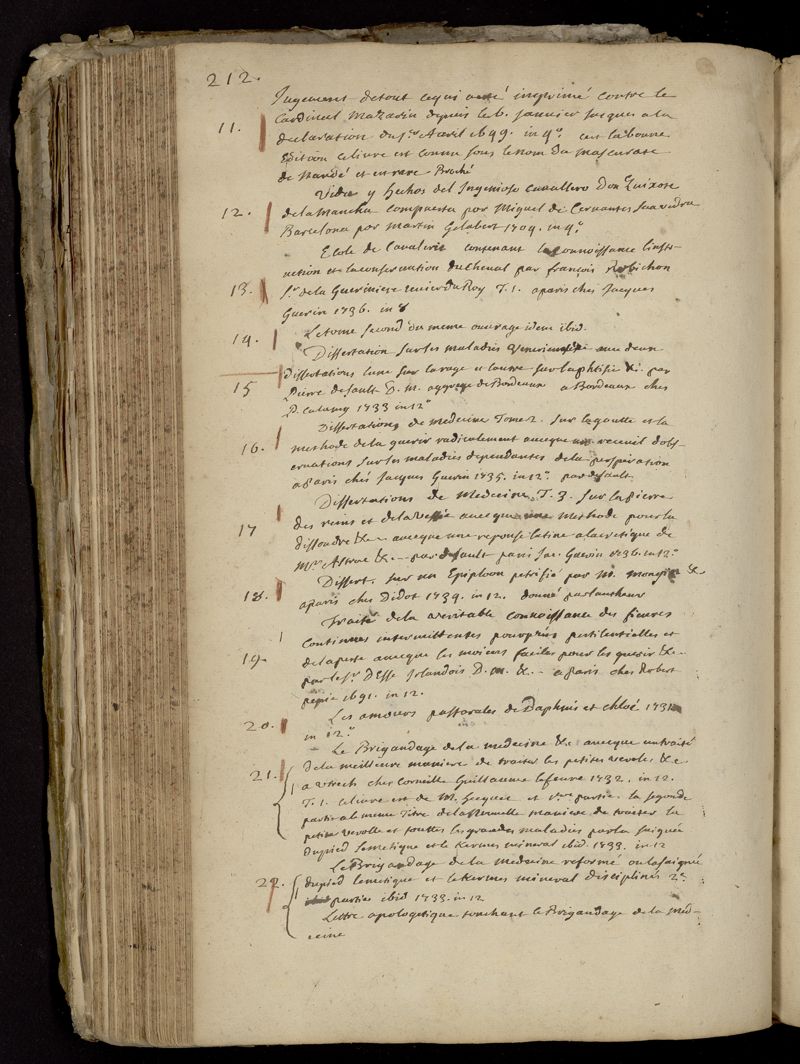 212.
Jugement de tout ce qui a eté imprimé contre le
11. Cardinal Mazarin depuis le 6. Janvier jusques a la
declaration du 1.er Avril 1649. in 4.o c'est la bonne
Edition ce livre est connu sous le nom du mascurate
de Naudé et est rare Broché
Vida y Hechos del Ingenioso Cavallero Don Quixote
12. de la Mancha compuesta por Miguel de Cervantes Saavedra
Barcelona por Martin Gelabert 1704. in 4.o
Ecole de Cavalerie contenant la connoissance l'inst-
ruction et la conservation du Cheval par françois Robichon
13. S.r de la Gueriniere Ecuier du Roy T. 1. a paris chez Jacques
Guerin 1736. in 8
14. Le tome second du meme ouvrage idem ibid.
Dissertation sur les maladies Veneriennes avec deux
dissertations l'une sur la rage et l'autre sur la phtisie &c. par
15 Pierre desault D. M. aggregé de Bordeaux a Bordeaux chez
P. Calamy 1733 in 12.o
Dissertations de Medecine Tome 2. sur la goutte et la
16. methode de la guerir radicalement avecque un recueil d'obs-
ervations sur les maladies dependantes de la perspiration
a Paris chés Jacques Guerin 1735. in 12.o par desault
Dissertations de Medecine T. 3. sur la pierre
des reins et de la Vessie avecque une methode pour la
17 dissoudre &c. avecque une reponse latine a la critique de
M.r Astruc &c. par desault paris Jac. Guerin 1736. in 12.o
Dissert. sur un Epiploon petrifié par M. &c
18. a paris chez Didot 1734. in 12. donné par l'autheur
Traité de la veritable connoissance des fievres
Continues intermittentes pourprées pestilentielles et
19. de la peste avecque les moiens faciles pour les querir &c.
par le S.r D'Esse Irlandois D. m. &c. a Paris chez Robert
pepie 1691. in 12.
20. Les amours pastorales de Daphnis et chloé 1731
in 12.o
Le Brigandage de la medecine &c avecque un traité
21. de la meilleure maniere de traiter les petites veroles &c
a Utrech chez Corneille Guillaume lefevre 1732. in 12.
T. 1. ce livre est de M. Hecquet et 1.ere partie. la segonde
partie a le meme Titre de la Nouvelle maniere de traiter la
petite verolle et touttes les grandes maladies par la saignée
du pied l'emetique et le Kermes mineral ibid. 1733. in 12
Le Brigandage de la medecine reformé ou la saignée
22. du pied l'emetique et le Kermes mineral disciplinés 2.e
partie ibid 1733. in 12
Lettre apologetique touchant le Brigandage de la Med-
ecine